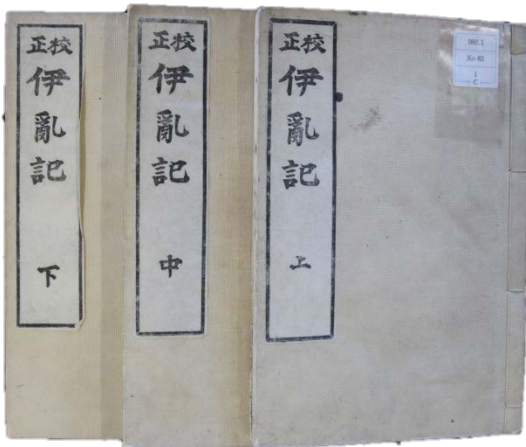 校正
伊亂記
上
校正
伊亂記
中
校正
伊亂記
下
092.1
Ko 83
1
C